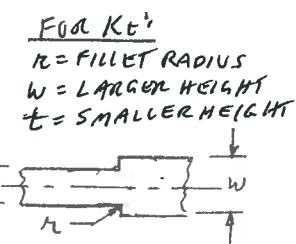 FOR Kt:
r = FILLET RADIUS
W = LARGER HEIGHT
t = SMALLER HEIGHT
W
r